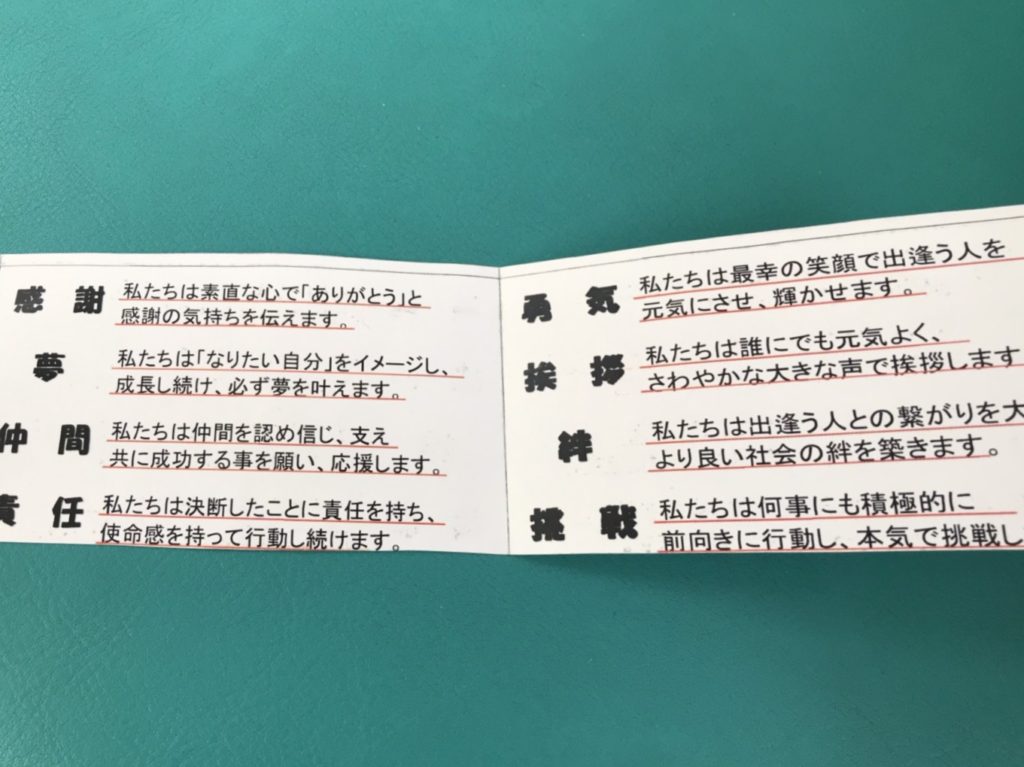 感謝 私たちは素直な心で「ありがとう」と
感謝の気持ちを伝えます。
夢 私たちは「なりたい自分」をイメージし、
成長し続け、必ず夢を叶えます。
仲間 私たちは仲間を認め信じ、支え
共に成功する事を願い、応援します。
責任 私たちは決断したことに責任を持ち、
使命感を持って行動し続けます。
勇気 私たちは最幸の笑顔で出逢う人を
元気にさせ、輝かせます。
挨拶 私たちは誰にでも元気よく、
さわやかな大きな声で挨拶します
絆 私たちは出逢う人との繋がりを大
より良い社会の絆を築きます。
挑戦 私たちは何事にも積極的に
前向きに行動し、本気で挑戦し